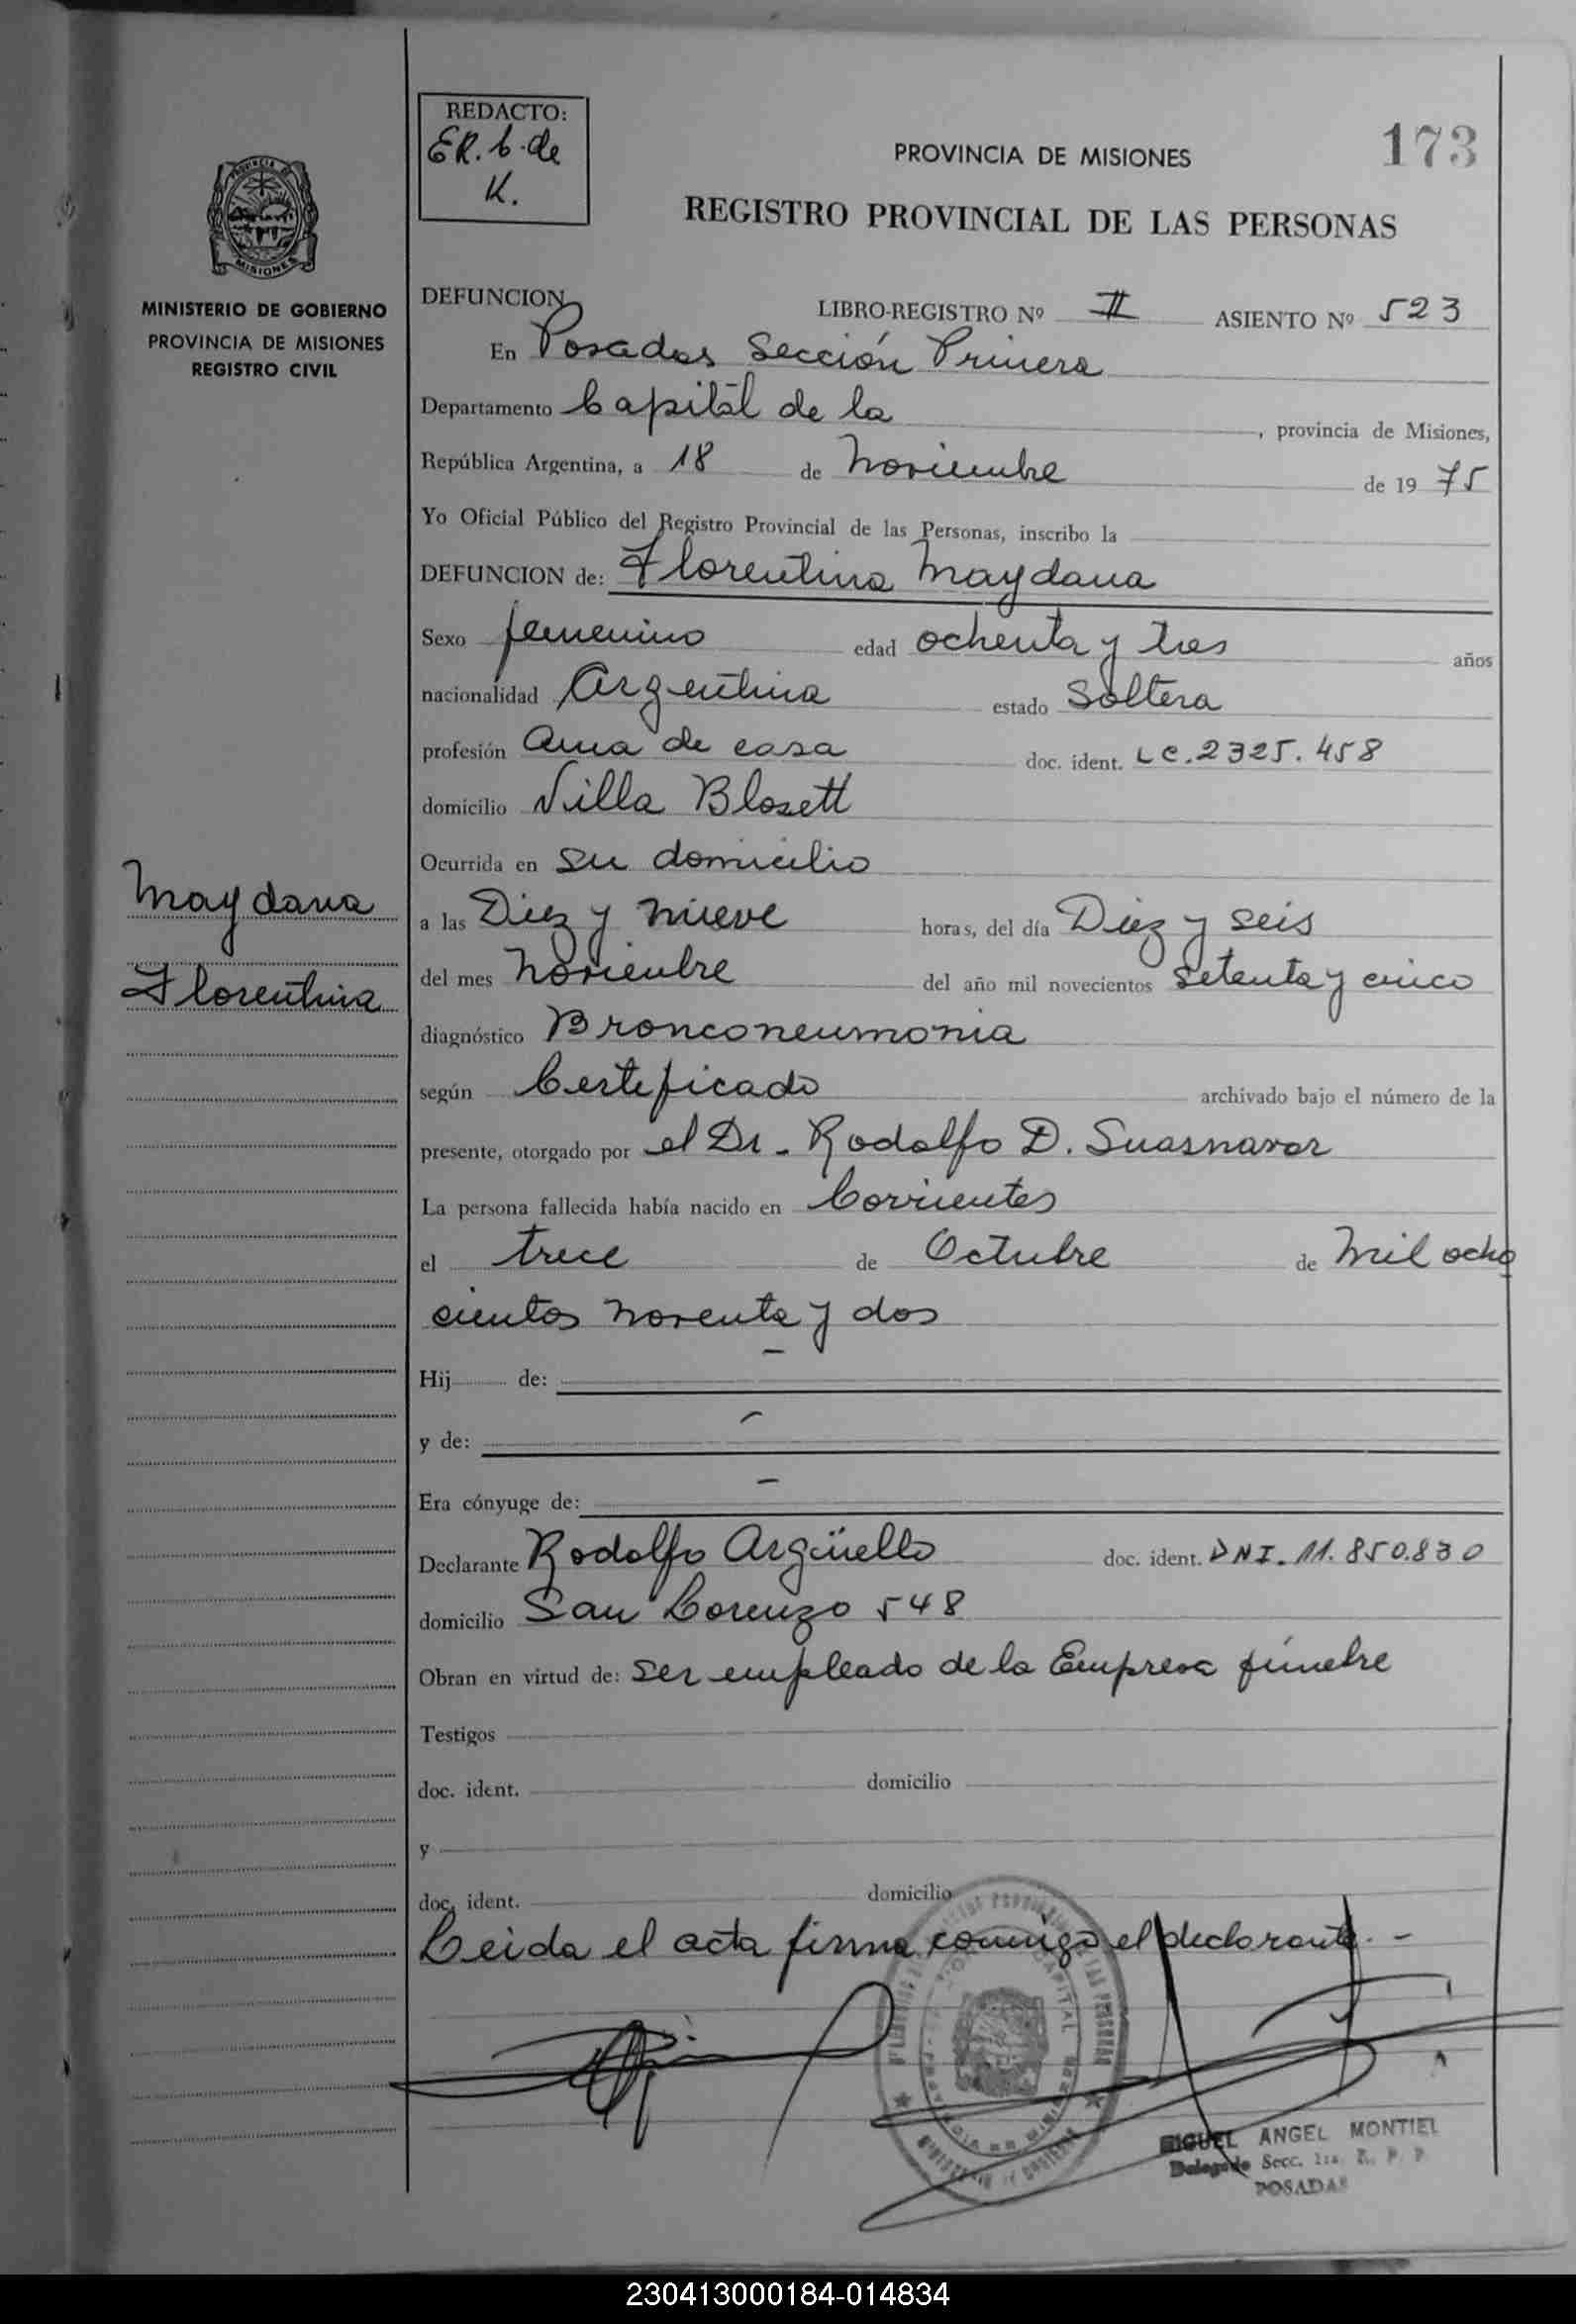 REDACTO:
ER. C. de
K.
PROVINCIA DE MISIONES
173
REGISTRO PROVINCIAL DE LAS PERSONAS
MISIONES
MINISTERIO DE GOBIERNO
PROVINCIA DE MISIONES
REGISTRO CIVIL
DEFUNCION
LIBRO-REGISTRO Nº II ASIENTO Nº 523
En Posadas Sección Primera
Departamento Capital de la , provincia de Misiones,
República Argentina, a 18 de Noviembre de 19 75
Yo Oficial Público del Registro Provincial de las Personas, inscribo la
DEFUNCION de: Florentina Maydana
Sexo femenino edad ochenta y tres años
nacionalidad Argentina estado Soltera
profesión Ama de casa doc. ident. LC. 2325.458
domicilio Villa Blosett
Ocurrida en su domicilio
Maydana
Florentina
a las Diez y nueve horas, del día Diez y seis
del mes Noviembre del año mil novecientos setenta y cinco
diagnóstico Bronconeumonia
según Certeficado archivado bajo el número de la
presente, otorgado por el Dr. Rodolfo D. Suasnavar
La persona fallecida había nacido en Corrientes
el trece de Octubre de Mil ocho
cientos noventa y dos
Hij de: -
y de: -
Era cónyuge de: -
Declarante Rodolfo Argüello doc. ident. DNI. 11.850.830
domicilio San Lorenzo 548
Obran en virtud de: ser empleado de la Empresa fúnebre
Testigos
doc. ident. domicilio
y
doc. ident. domicilio
Leida el acta firma conmigo el declarante. -
MIGUEL ANGEL MONTIEL
Delegado Secc. 1ra. R. P. P.
POSADAS
230413000184-014834